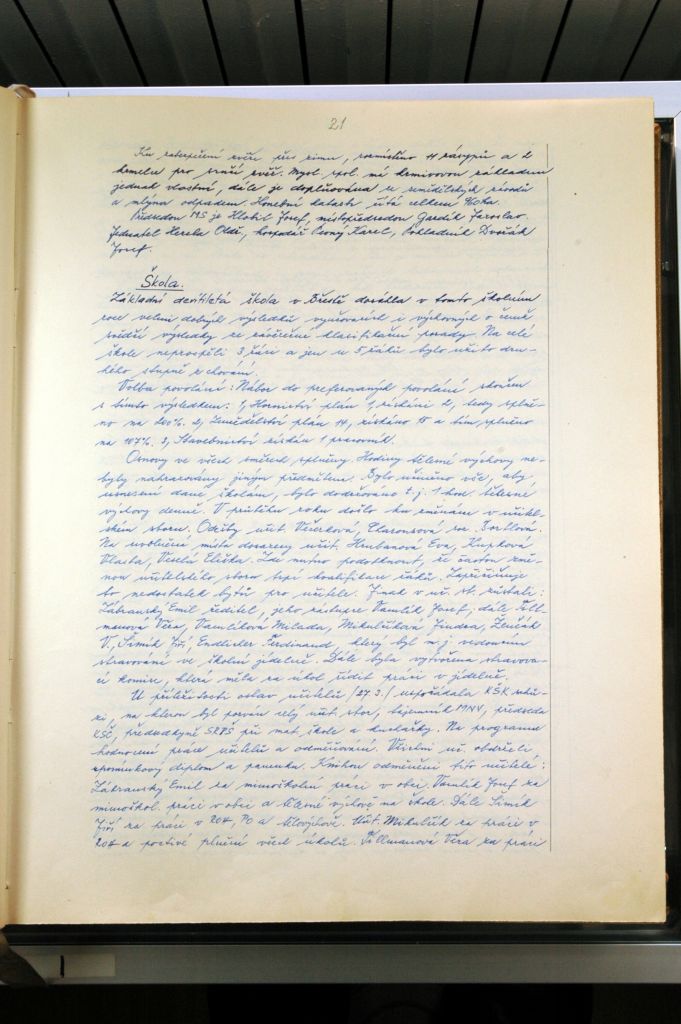 21
Ku zabezpečení zvěře přes zimu, rozmístěno 11 zásypů a 2
krmelce pro srnčí zvěř. Mysl. spol. má krmivovou základnu
jednak vlastní, dále je doplňována ze zemědělských závodů
a mlýna odpadem. Honební katastr čítá celkem ha.
Předsedou MS je Hlobil Josef, místopředsedou Gardík Jaroslav.
Jednatel Herela Oldř., hospodář Černý Karel, Pokladník Dvořák
Josef.
Škola.
Základní devítiletá škola v Břestě dosáhla v tomto školním
roce velmi dobrých výsledků vyučovacích i výchovných o čemž
svědčí výsledky ze závěrečné klasifikační porady. Na celé
škole neprospěli 3 žáci a jen u 5 žáků bylo užito dru-
hého stupně z chování.
Volba povolání: Nábor do preferovaných povolání skončen
s tímto výsledkem: 1, Hornictví plán 1, získáni 2, tedy splně-
no na 200%. 2, Zemědělství plán 14, získáno 15 a tím splněno
na 107%. 3, Stavebnictví získán 1 pracovník.
Osnovy ve všech směrech splněny. Hodiny tělesné výchovy ne-
byly nahrazovány jiným předmětem. Bylo učiněno vše, aby
usnesení dané školám, bylo dodržováno t. j. 1 hod. tělesné
výchovy denně. V průběhu roku došlo ku změnám v učitel-
ském sboru. Odešly učit. Večerková, roz. Bortlová.
Na uvolněná místa dosazeny učit. Hrubanová Eva, Kupková
Vlasta, Veselá Eliška. Zde nutno podotknout, že častou změ-
nou učitelského sboru trpí kvalifikace žáků. Zapříčiňuje
to nedostatek bytů pro učitele. Jinak v uč. sb. zůstali:
Zábranský Emil ředitel, jeho zástupce Vamlík Josef, dále Till-
manová Věra, Vamlíková Milada, Mikulíková Jindra, Zenčák
V., Šimík Jiří, Endlicher Ferdinand, který byl m. j. vedoucím
stravování ve školní jídelně. Dále byla vytvořena stravova-
cí komise, která měla za úkol řídit práci v jídelně.
U příležitosti oslav učitelů /27. 3./ uspořádala KŠK schů-
zi, na kterou byl pozván celý učit. sbor, tajemník MNV, předseda
KSČ, předsedkyně SRPŠ při mat. škole a kuchařky. Na programu
hodnocení práce učitelů a odměňování. Všichni uč. obdrželi
upomínkový diplom a Knihou odměněni tito učitelé:
Zábranský Emil za mimoškolní práci v obci. Vamlík Josef za
mimoškol. práci v obci a tělesné výchově na škole. Dále Šimík
Jiří za práci v ZOŠ, PO a tělovýchově. Učit. Mikulík za práci v
ZOŠ a poctivé plnění všech úkolů. Tillmanová Věra za práci